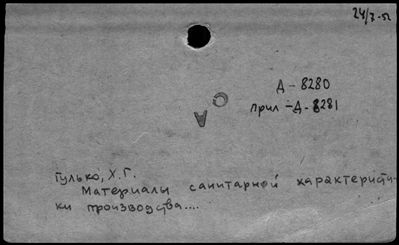 24/3-52
Д-8280
прил-Д-8281
Гулько, Х.Г.
Материалы санитарной характеристи-
ки производства....